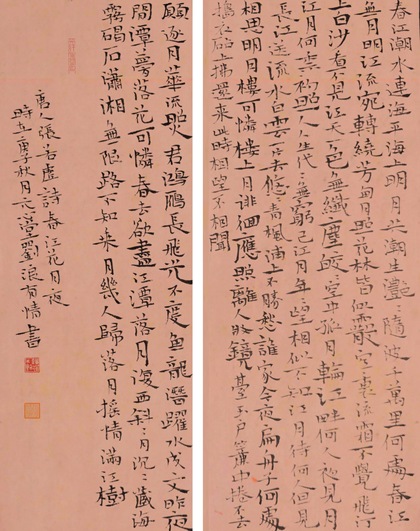 春江潮水連海平海上明月共潮生灔々隨波千萬里何處春江
無月明江流宛轉繞芳甸月照花林皆似霰空裏流霜不覺飛汀
上白沙看不見江天一色無纖塵皎々空中孤月輪江畔何人初見月
江月何年初照人人生代々無窮已江月年々望相似不知江月待何人但見
長江送流水白雲一片去悠々青楓浦上不勝愁誰家今夜扁舟子何處
相思明月樓可憐樓上月徘徊應照離人妝鏡臺玉戶簾中捲不去
搗衣砧上拂還來此時相望不相聞
願逐月華流照君鴻鴈長飛光不度魚龍潛躍水成文昨夜
閒潭夢落花可憐春去欲盡江潭落月復西斜々月沉々藏海
霧碣石瀟湘無限路不知乘月幾人歸落月搖情滿江樹
唐人張若虛詩春江花月夜
時在庚子秋月劉浪有情書